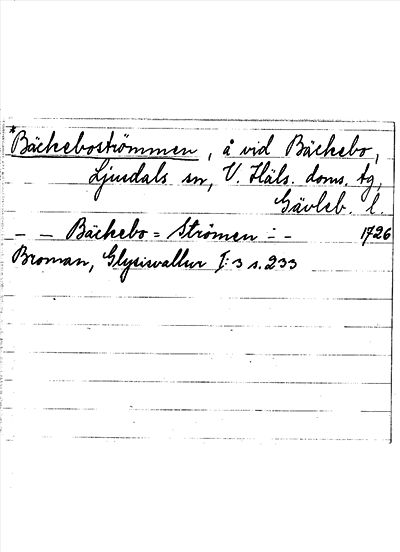 *Bäckeboströmmen, å vid Bäckebo,
Ljusdals sn, V. Häls. doms. tg,
Gävleb. l.
– – Bäckebo = Strömen – – 1726
Broman, Glysisvallur I:3 s. 233